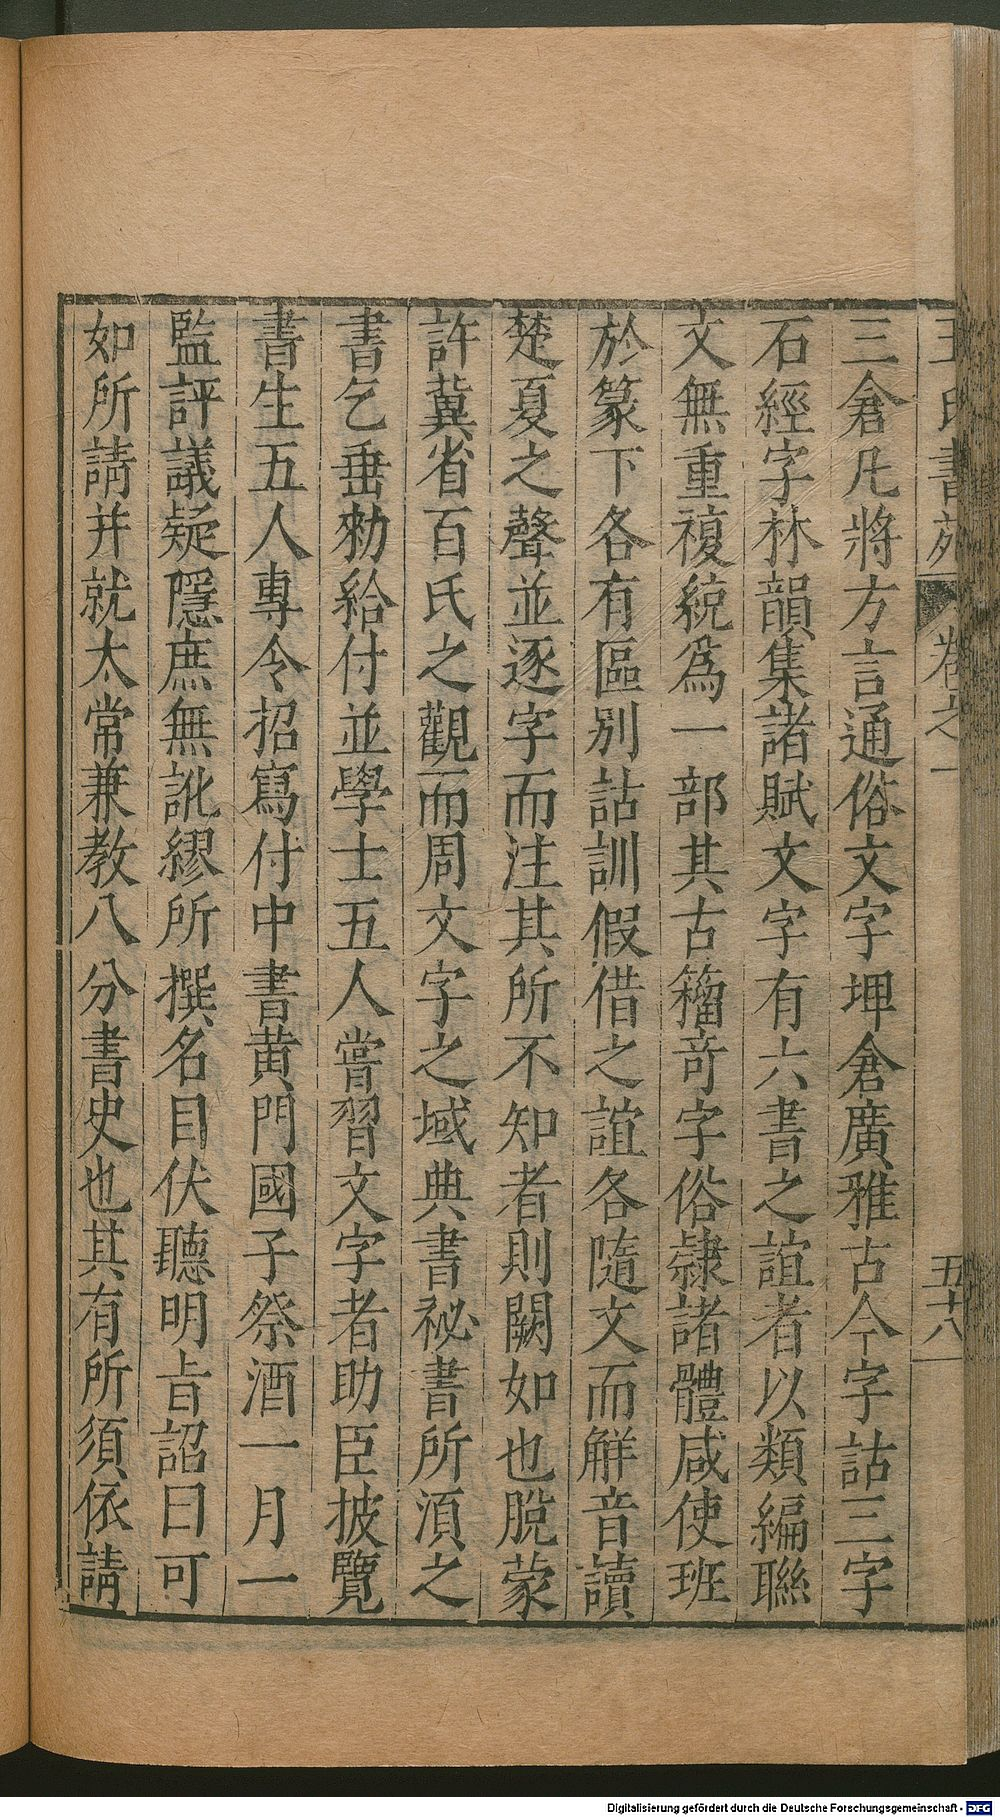 王氏書苑 卷之一 五十八
三倉凡將方言通俗文字埤倉廣雅古今字詁三字
石經字林韻集諸賦文字有六書之誼者以類編聯
文無重複統爲一部其古籀奇字俗隸諸體咸使班
於篆下各有區別詁訓假借之誼各隨文而觧音讀
楚夏之聲並逐字而注其所不知者則闕如也脫蒙
許冀省百氏之觀而周文字之域典書祕書所湏之
書乞垂勑給付並學士五人嘗習文字者助臣披覽
書生五人專令招寫付中書黄門國子祭酒一月一
監評議疑隱庶無訛繆所撰名目伏聽明㫖詔曰可
如所請并就太常兼教八分書史也其有所須依請
Digitalisierung gefördert durch die Deutsche Forschungsgemeinschaft - DFG